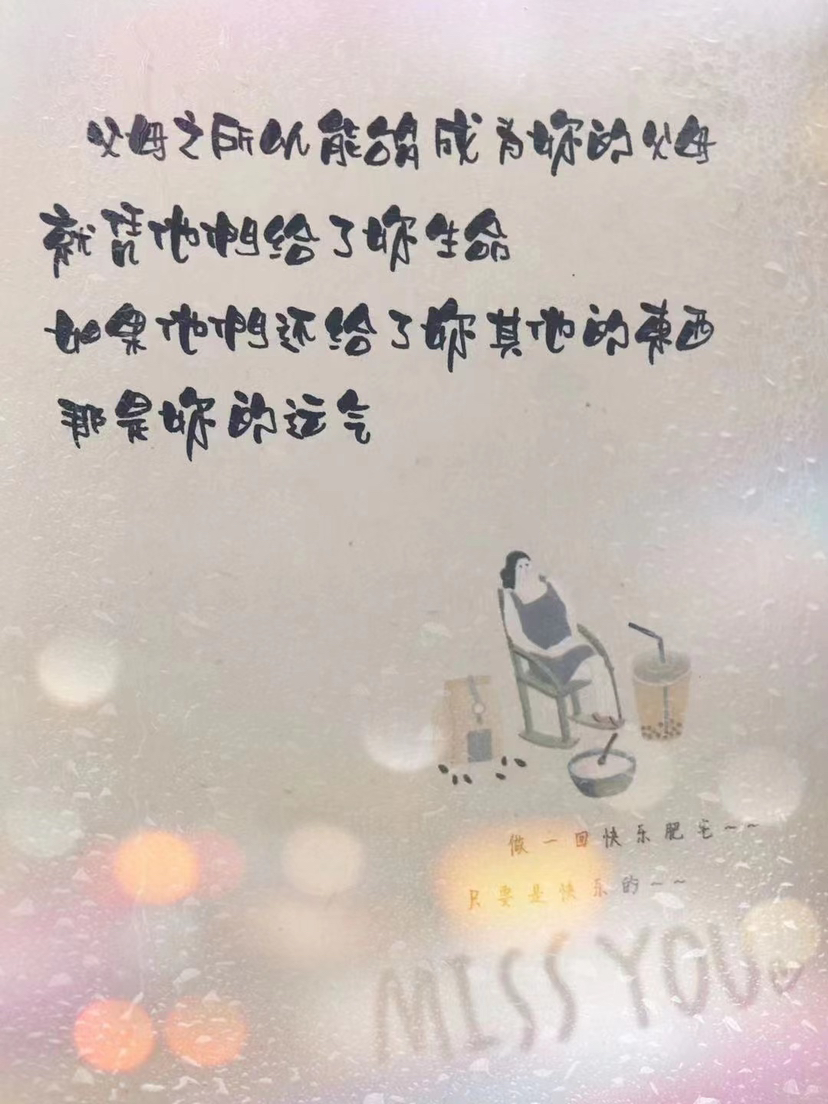 父母之所以能够成为妳的父母
就凭他們给了妳生命
如果他們还给了妳其他的東西
那是妳的运气
做一回快乐肥宅~~
只要是快乐的~~
MISS YOU